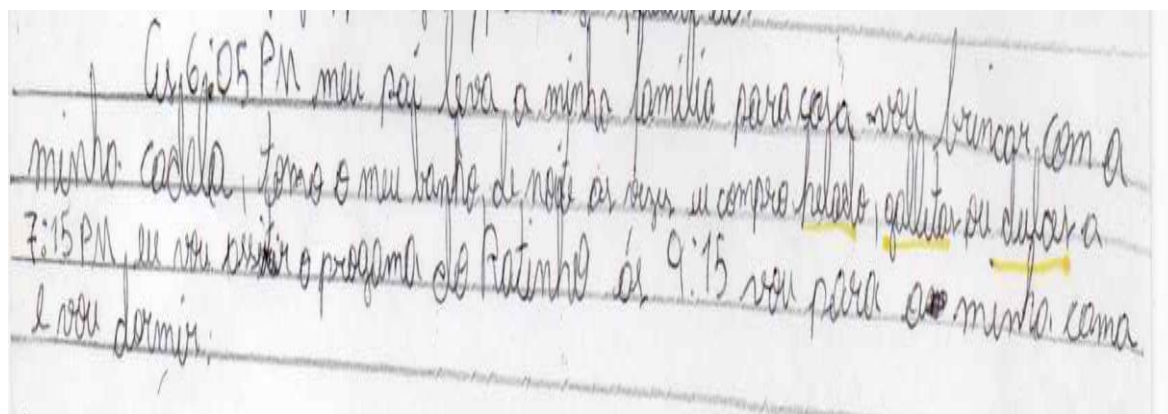 As 6:05 PM meu pai leva a minha familia para casa vou brincar com a
minha cadella, tomo o meu banho, de noite as vezes eu compro helado, galletas ou dulces a
7:15 PM eu vou assistir o progama do Ratinho ás 9:15 vou para a minha cama
e vou dormir.